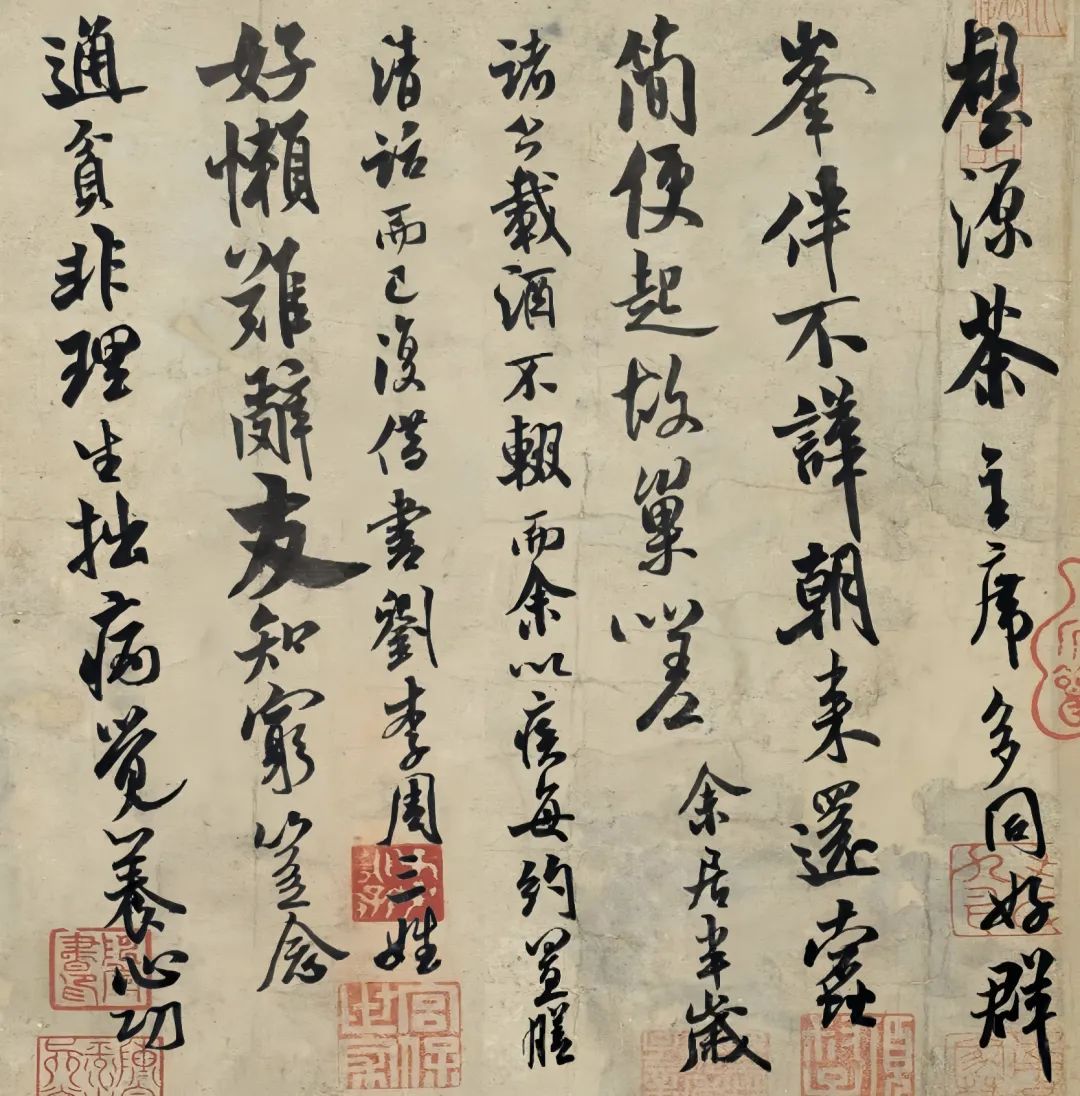 壑源茶主席多同好群
峯伴不譁朝来還蠹
簡便起故巢嗟
余居半歲
諸公載酒不輟而余以疾每約置膳
清話而已復借書劉李周三姓
好懶難辭友知窮豈念
通貧非理生拙病覺養心功